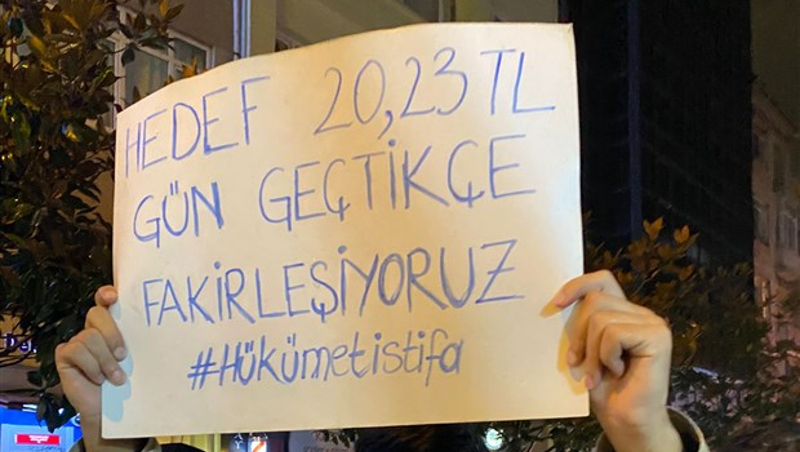 HEDEF 20,23 TL
GÜN GEÇTİKÇE
FAKİRLEŞİYORUZ
#Hükümetistifa